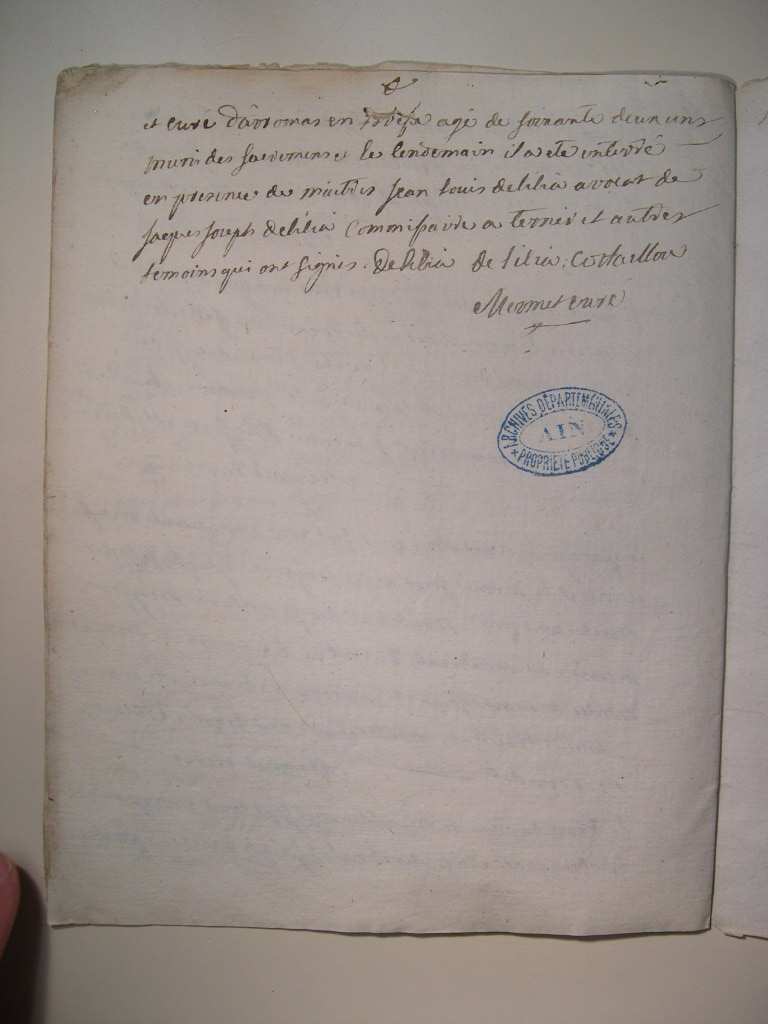 et curé d'arromas en agé de soixante deux ans
muni des sacremens, le lendemain il a eté enterré
en presence de maitres jean Louis delilia avocat de
jaques joseph delilia Commissaire a terrier et autres
temoins qui ont signés. Delilia de lilia.
Mermet curé
ARCHIVES DÉPARTEMENTALES
AIN
PROPRIÉTÉ PUBLIQUE